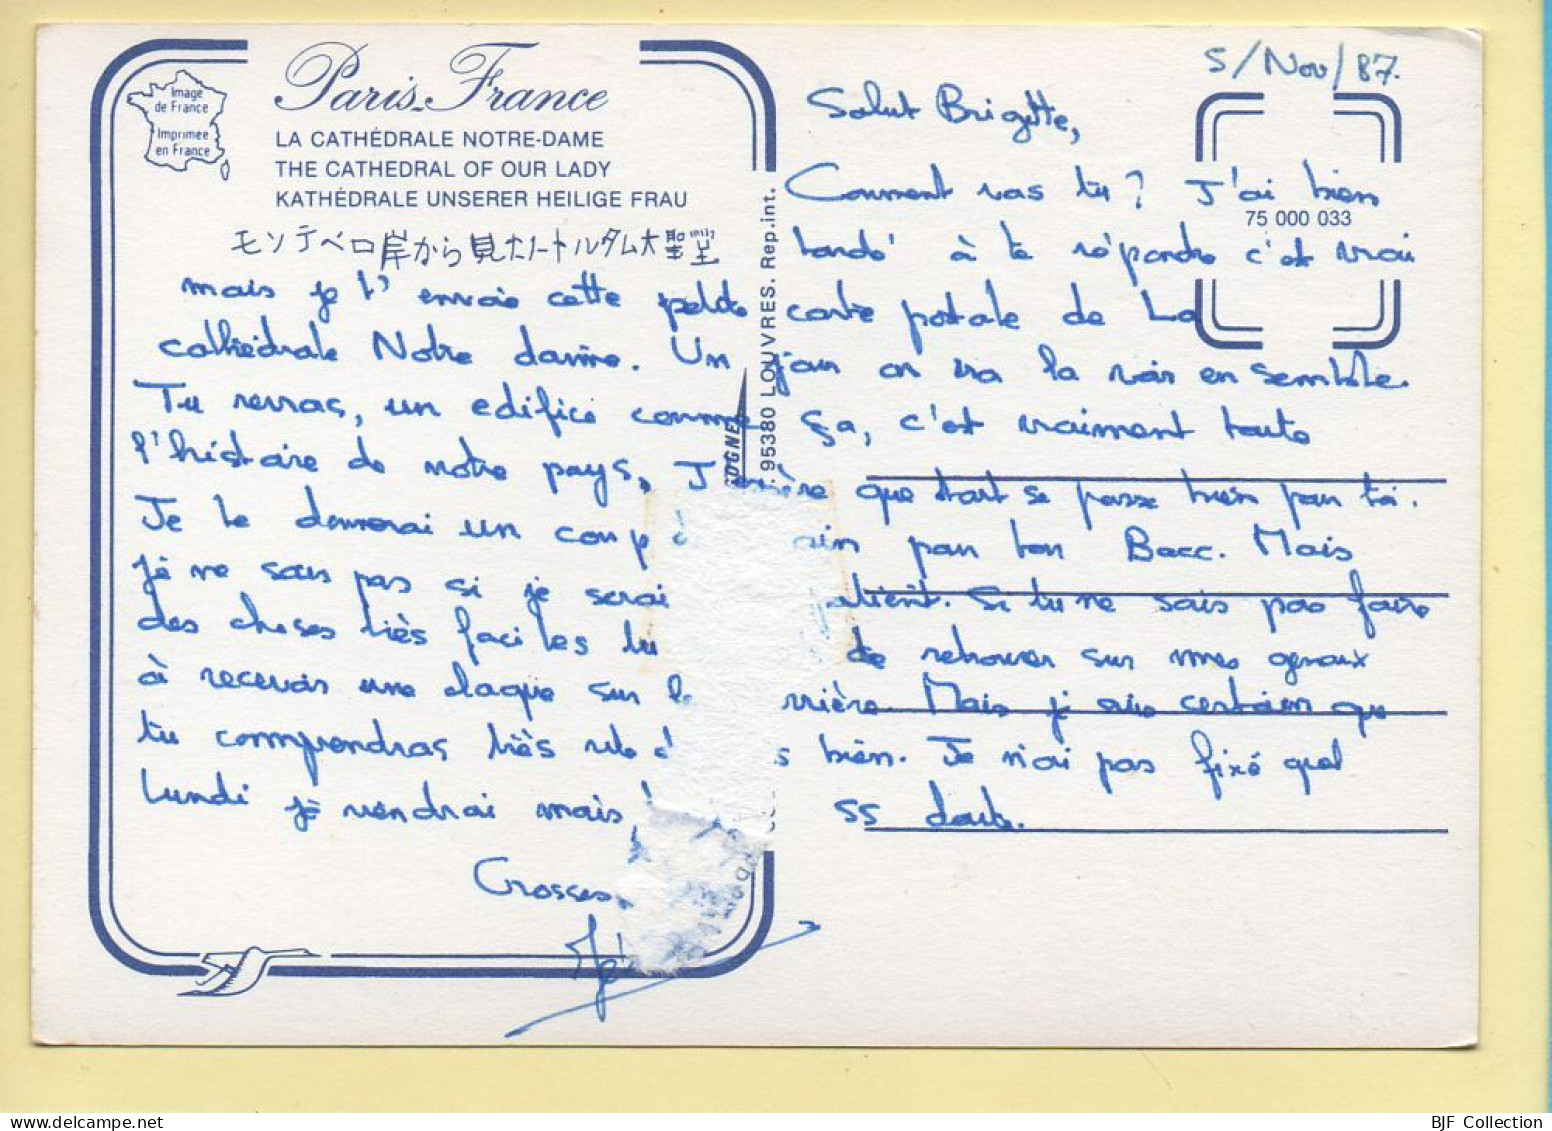 5/Nov/87.
Image
de France
Imprimée
en France
Paris-France
LA CATHÉDRALE NOTRE-DAME
THE CATHEDRAL OF OUR LADY
KATHÉDRALE UNSERER HEILIGE FRAU
モンテベロ岸から見たノートルダム大聖堂
75 000 033
95380 LOUVRES. Rep.int.
Salut Brigitte,
Comment vas tu? J'ai bien
tardé à te répondre c'est vrai
mais je t'envoie cette petite carte postale de La
cathédrale Notre dame. Un jour on ira la voir ensemble.
Tu verras, un edifice comme ça, c'est vraiment toute
l'histoire de notre pays. J' que tout se passe bien pour toi.
Je te donnerai un coup d ain pour ton Bacc. Mais
je ne sais pas si je serai atient. Si tu ne sais pas faire
des choses très faciles tu de retrouver sur mes genoux
à recevoir une claque sur le rrière. Mais je suis certain que
tu comprendras très bien. Je n'ai pas fixé quel
lundi je viendrai mais ss doute.
Grosses